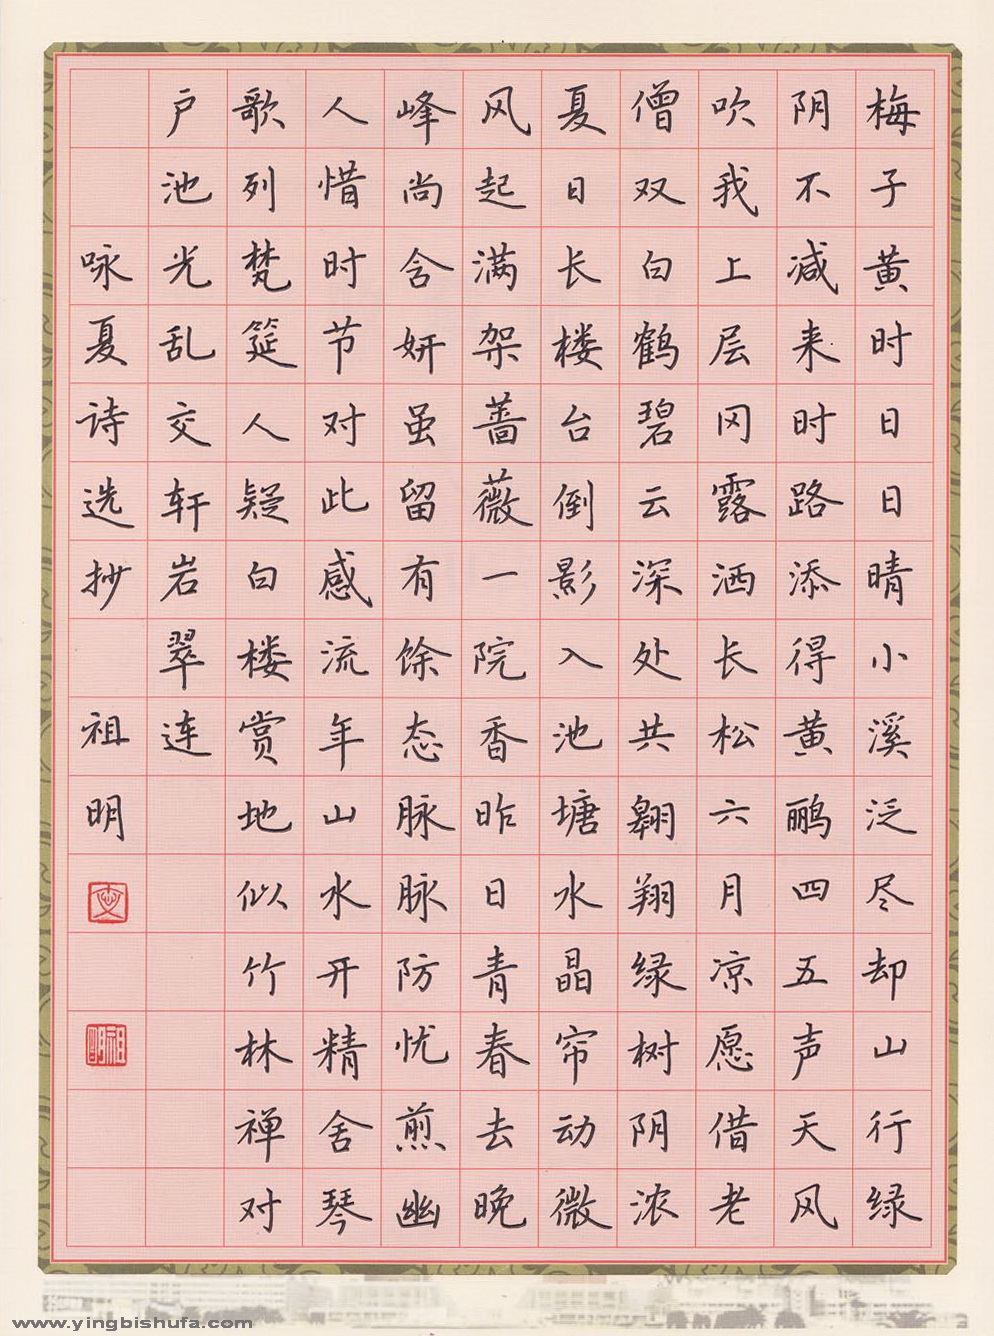 梅子黄时日日晴小溪泛尽却山行绿
阴不减来时路添得黄鹂四五声天风
吹我上层冈露洒长松六月凉愿借老
僧双白鹤碧云深处共翱翔绿树阴浓
夏日长楼台倒影入池塘水晶帘动微
风起满架蔷薇一院香昨日青春去晚
峰尚含妍虽留有馀态脉脉防忧煎幽
人惜时节对此感流年山水开精舍琴
歌列梵筵人疑白楼赏地似竹林禅对
户池光乱交轩岩翠连
咏夏诗选抄 祖明
祖明
www.yingbishufa.com